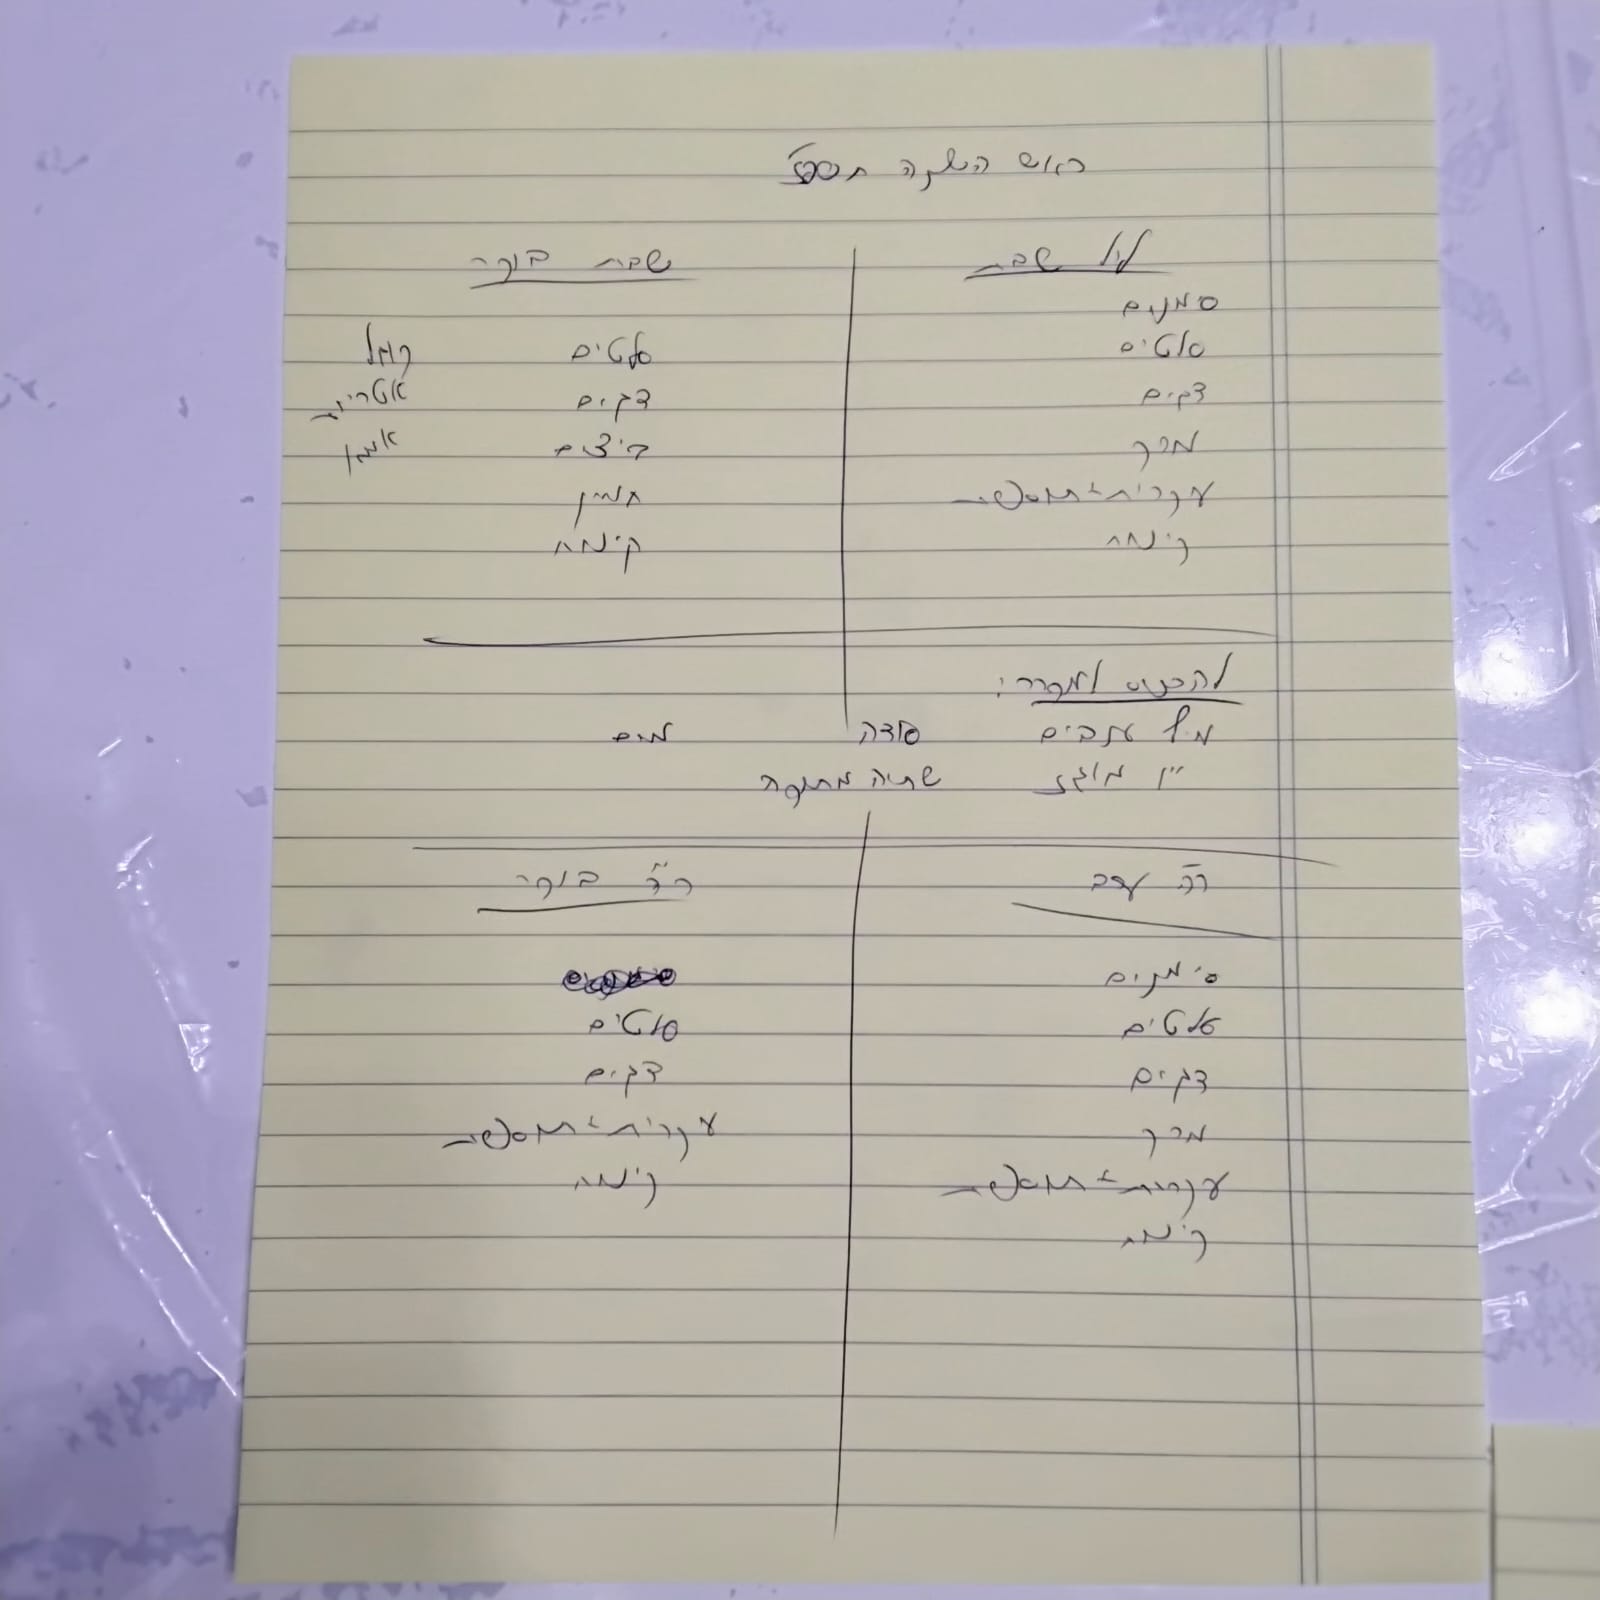 ראש השנה תשפ"ז
ליל שבת
סמנים
סלטים
דגים
מרק
עקרית + תוספות
קינוח
שבת בוקר
סלטים
דגים
ביצים
חמין
קינוח
קוגל
אטריות
להכניס למקרר:
מיץ ענבים סודה מים
יין מוגז שתיה מתוקה
ר"ה ערב
סימנים
סלטים
דגים
מרק
עקרית + תוספות
קינוח
ר"ה בוקר
סלטים
דגים
עקרית + תוספות
קינוח